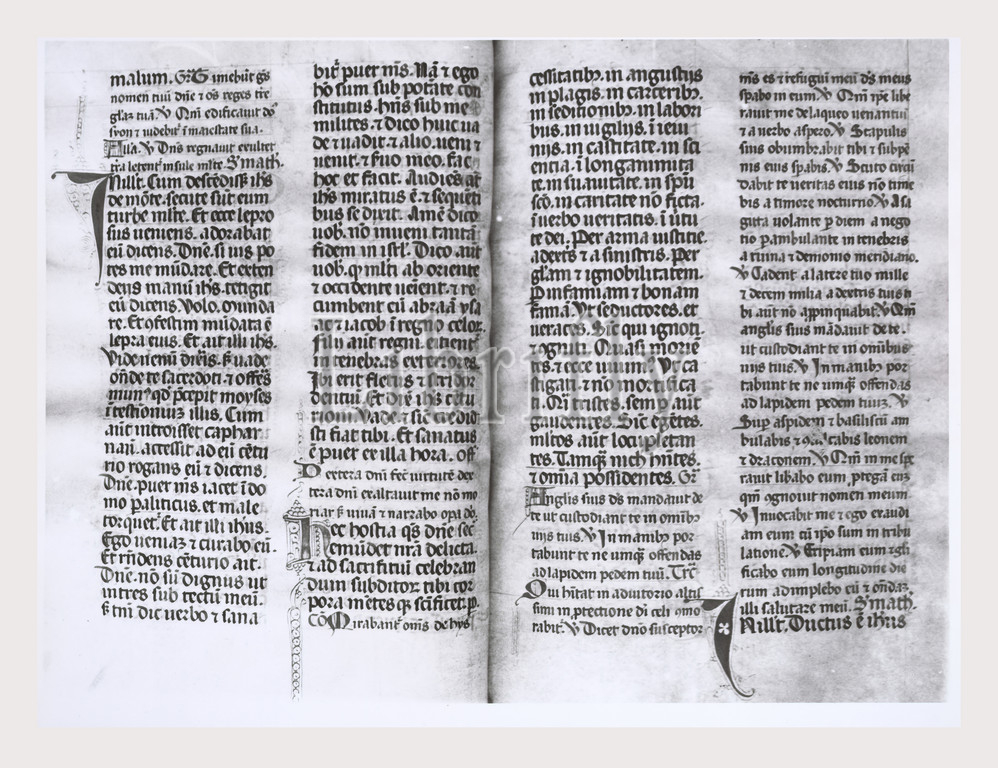 malum. Gr̄. Timebūt gē̄s
nomen tuū dn̄e ⁊ om̄s reges tr̄e
gl̄az tuā. ℣ Qm̄ edificauit dō
syon ⁊ uidebit̄ ī maiestate sua.
All'a. ℣ Dn̄s regnauit exultet
tr̄a letent̄ insule ml̄te. S' math.
In ill̄ t̄. Cum descēdiss; ih̄s
de mōte. secute sūt eum
turbe ml̄te. Et ecce lepro
sus ueniens. adorabat
eū dicens. Dn̄e. si uis po
tes me mūdare. Et exten
dens manū ih̄s. tetigit
eū dicens. Volo. Munda
re. Et ꝯfestim mūdata ē
lepra eius. Et ait illi ih̄s.
Vide nemī dix̄is. s; uade
ondē te sacerdoti. ⁊ offers
mun' qd̄ p̄cepit moyses
ī testioniuz illis. Cum
aūt introisset caphar
naū. accessit ad eū cētu
rio rogans eū ⁊ dicens.
Dn̄e. puer m̄s iacet ī do
mo paliticus. et male
torquet̄. Et ait illi ih̄us.
Ego ueniaz ⁊ curabo eū.
Et rn̄dens cēturio ait.
Dn̄e. nō sū dignus ut
intres sub tectū meū.
s; tm̄ dic uerbo ⁊ sana
bit̄ puer m̄s. Nā ⁊ ego
hō sum sub potate con
stitutus. hn̄s sub me
milites. ⁊ dico huic ua
de ⁊ uadit. ⁊ alio. ueni ⁊
uenit. ⁊ s'uo meo. fac
hoc et facit. Audiēs aūt
ih̄s miratus ē. ⁊ sequēti
bus se dixit. Amē dico
uob. nō inueni tantā
fidem in isr̄l. Dico aūt
uob. q; ml̄ti ab oriente
⁊ occidente ueīent. ⁊ re
cumbent cū abraā ysa
ac ⁊ iacob ī regno celoꝝ.
filij aūt regni. eicient̄
in tenebras exteriores.
Ibi erit fletus ⁊ stridor
dentiū. Et dix̄ ih̄s cētu
rioni. Vade. ⁊ sic̄ credidi
sti fiat tibi. Et sanatus
ē puer ex illa hora. off̄
Dextera dn̄i fec̄ uirtutē dex
tera dn̄i exaltauit me nō mo
riar s; uiuā ⁊ narrabo opa dn̄i.
Hec hostia qs̄ dn̄e sec̄
emūdet nr̄a delicta.
⁊ ad sacrifitiū celebran
dum subditoꝝ tibi cor
pora mētes q; sc̄ificet. p.
Cō Mirabant̄ om̄s de hys
cessitatib; in angustijs
in plagis. in carcerib;
in seditionib; in labori
bus. in uigilijs. ī ieiu
nijs. in castitate. in sci
entia. ī longanimita
te. in suauitate. in sp̄u
scō. in caritate nō ficta.
ī uerbo ueritatis. ī ūtu
te dei. Per arma iustitie
a dextis ⁊ a sinistris. Per
gl̄am ⁊ ignobilitatem.
P infamiam ⁊ bonam
famā. Vt seductores. et
ueraces. Sic̄ qui ignoti.
⁊ ogniti. Quasi moriē
tes. ⁊ ecce uiuim'. Vt ca
stigati. ⁊ nō mortifica
ti. Qu' tristes. semp aūt
gaudentes. Sic̄ egētes.
ml̄tos aūt locupletan
tes. Tamq̄ nich̄ hn̄tes.
⁊ om̄ia possidentes. Gr̄.
Anglis suis dō mandauit de
te ut custodiant te in om̄ib;
uijs tuis. ℣ In manib; por
tabunt te ne umq̄ offendas
ad lapidem pedem tuū. Trc̄.
Qui hītat in adiutorio altis
simi in ptectione dī celi omo
rabit̄. ℣ Dicet dn̄o susceptor
m̄s es ⁊ refugiū meū dō meus
sp̄abo in eum. ℣ Qm̄ ip̄e libe
rauit me de laqueo uenantiū
⁊ a verbo aspero. ℣ Scapulis
suis obumbrabit tibi ⁊ sub pē
nis eius sp̄abis. ℣ Scuto circū
dabit te ueritas eius nō time
bis a timore nocturno. ℣ A sa
gitta uolante p diem a nego
tio pambulante in tenebris
a ruina ⁊ demonio meridiano.
℣ Cadent a latere tuo mille
⁊ decem milia a dextris tuis ti
bi aūt nō apꝓinquabit. ℣ Qm̄
anglis suis mādauit de te.
ut custodiant te in om̄ibus
uijs tuis. ℣ In manib; por
tabunt te ne umq̄ offendas
ad lapidem pedem tuuz. ℣
Sup aspidem ⁊ basiliscū am
bulabis ⁊ ꝯculcabis leonem
⁊ draconem. ℣ Qm̄ in me sp̄e
rauit lib'abo eum. ptegā euz
qm̄ ognouit nomen meum.
℣ Inuocabit me ⁊ ego exaudi
am eum cū ip̄o sum in tribu
latione. ℣ Eripiam eum ⁊ gl̄i
ficabo eum longitudine die
rum adimplebo eū ⁊ ondaz
illi salutare meū. S' math.
In ill̄ t̄. Ductus ē ih̄us